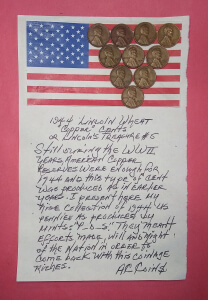 1944 LINCOLN WHEAT
"COPPER" CENTS
OR LINCOLN'S TREASURE #5
STILL DURING THE WWII
YEARS, AMERICAN COPPER
RESERVES WERE ENOUGH FOR
1944 AND THIS TYPE OF CENT
WAS PRODUCED AS IN EARLIER
YEARS. I PRESENT HERE MY
NINE COLLECTION OF 1944 US
PENNIES AS PRODUCED BY
MINTS: "P-D-S". THEY MEANT
EFFORTS MADE, WILL AND MIGHT
OF THE NATION IN ORDER TO
COME BACK WITH THIS COINAGE
RICHES.